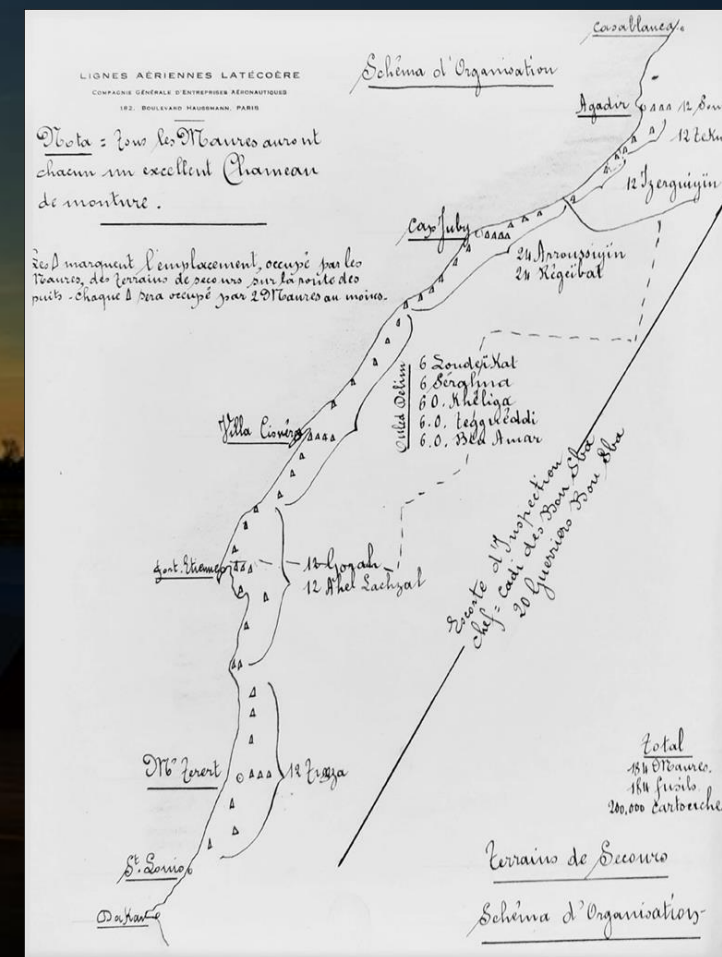 LIGNES AÉRIENNES LATÉCOÈRE
COMPAGNIE GÉNÉRALE D'ENTREPRISES AÉRONAUTIQUES
182, BOULEVARD HAUSSMANN, PARIS
Schéma d'Organisation
Nota = Tous les Maures auront
chacun un excellent Chameau
de monture.
Les Δ marquent l'emplacement, occupé par les
Maures, des terrains de secours sur la route des
puits - chaque Δ sera occupé par 2 Maures au moins.
Casablanca
Agadir
12
12
12 Izerguiyin
Cap Juby
24 Arroussiyin
24 Régeibat
Oulid Delim
6 Loudeïkat
6 Serghna
6 O. Khéliga
6. O. Teggueddi
6. O. Baa Amar
Villa Cisnéros
Port-Etienne
12 Gorah
12 Ahel Lachzal
Escorte d'Inspection
chef = Cadi des Bou Sba
20 Guerriers Bou Sba
Mt Terert
12 Trarza
St. Louis
Dakar
Total
184 Maures.
184 fusils.
200,000 cartouche
Terrains de Secours
Schéma d'Organisation-